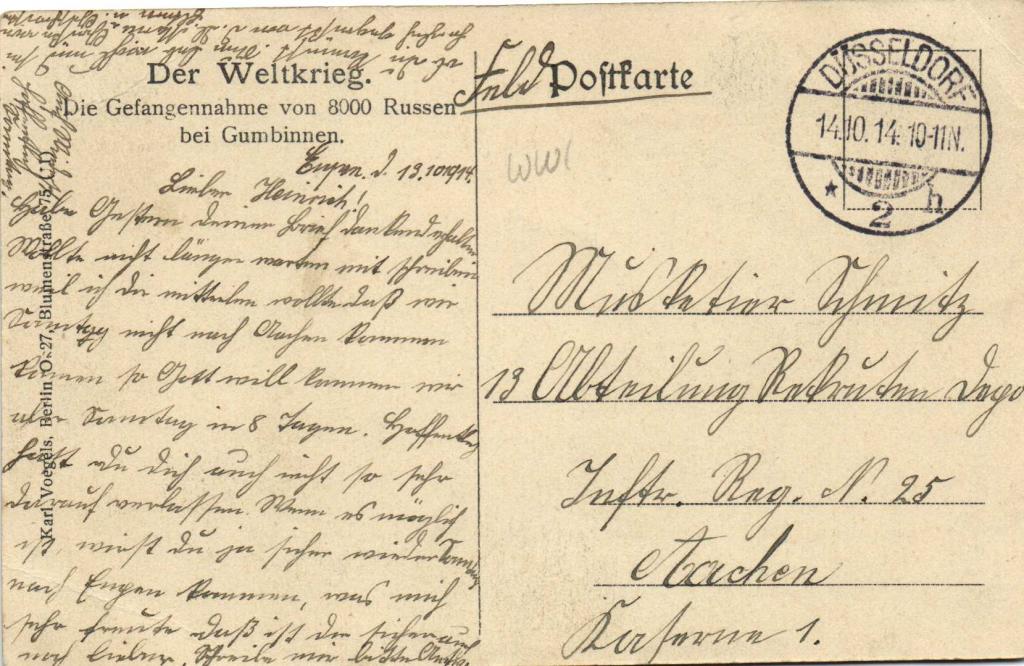 Der Weltkrieg.
Die Gefangennahme von 8000 Russen
bei Gumbinnen.
Eupen. d. 13.10.1914.
Lieber Heinrich!
Habe Gestern deinen Brief dankend erhalten
Wollte nicht länger warten mit schreiben
weil ich dir mitteilen wollte daß wir
Sonntag nicht nach Aachen kommen
können so Gott will kommen wir
aber Sonntag in 8 Tagen. Hoffentlich
hast du dich auch nicht so sehr
darauf verlassen. Wenn es möglich
ist, wirst du ja sicher wieder Sonntag
nach Eupen kommen, was mich
sehr freute daß ist dir sicher auch
noch lieber. Schreibe mir bitte
Karl Voegels, Berlin O. 27, Blumenstraße 75. (J.)
Feld Postkarte
WW1
DÜSSELDORF
14.10.14. 10-11N.
* 2 h
Musketier Schmitz
13 Abteilung Rekruten Depo
Inftr. Reg. N. 25
Aachen
Kaserne 1.